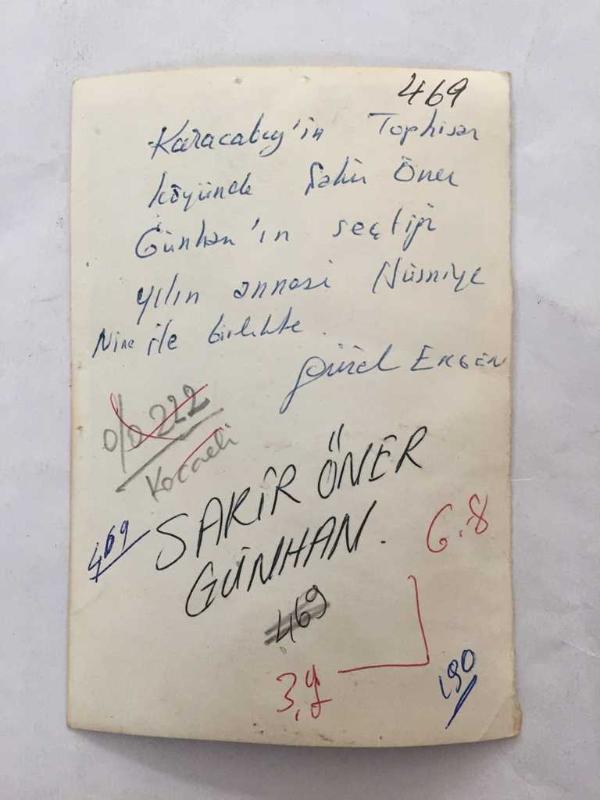 469
Karacabey'in Tophisar
köyünde Şakir Öner
Günhan'ın seçtiği
yılın annesi Hüsniye
Nine ile birlikte.
ERGEN
% 222
Kocaeli
469
SAKİR ÖNER
GÜNHAN.
6.8
469
190